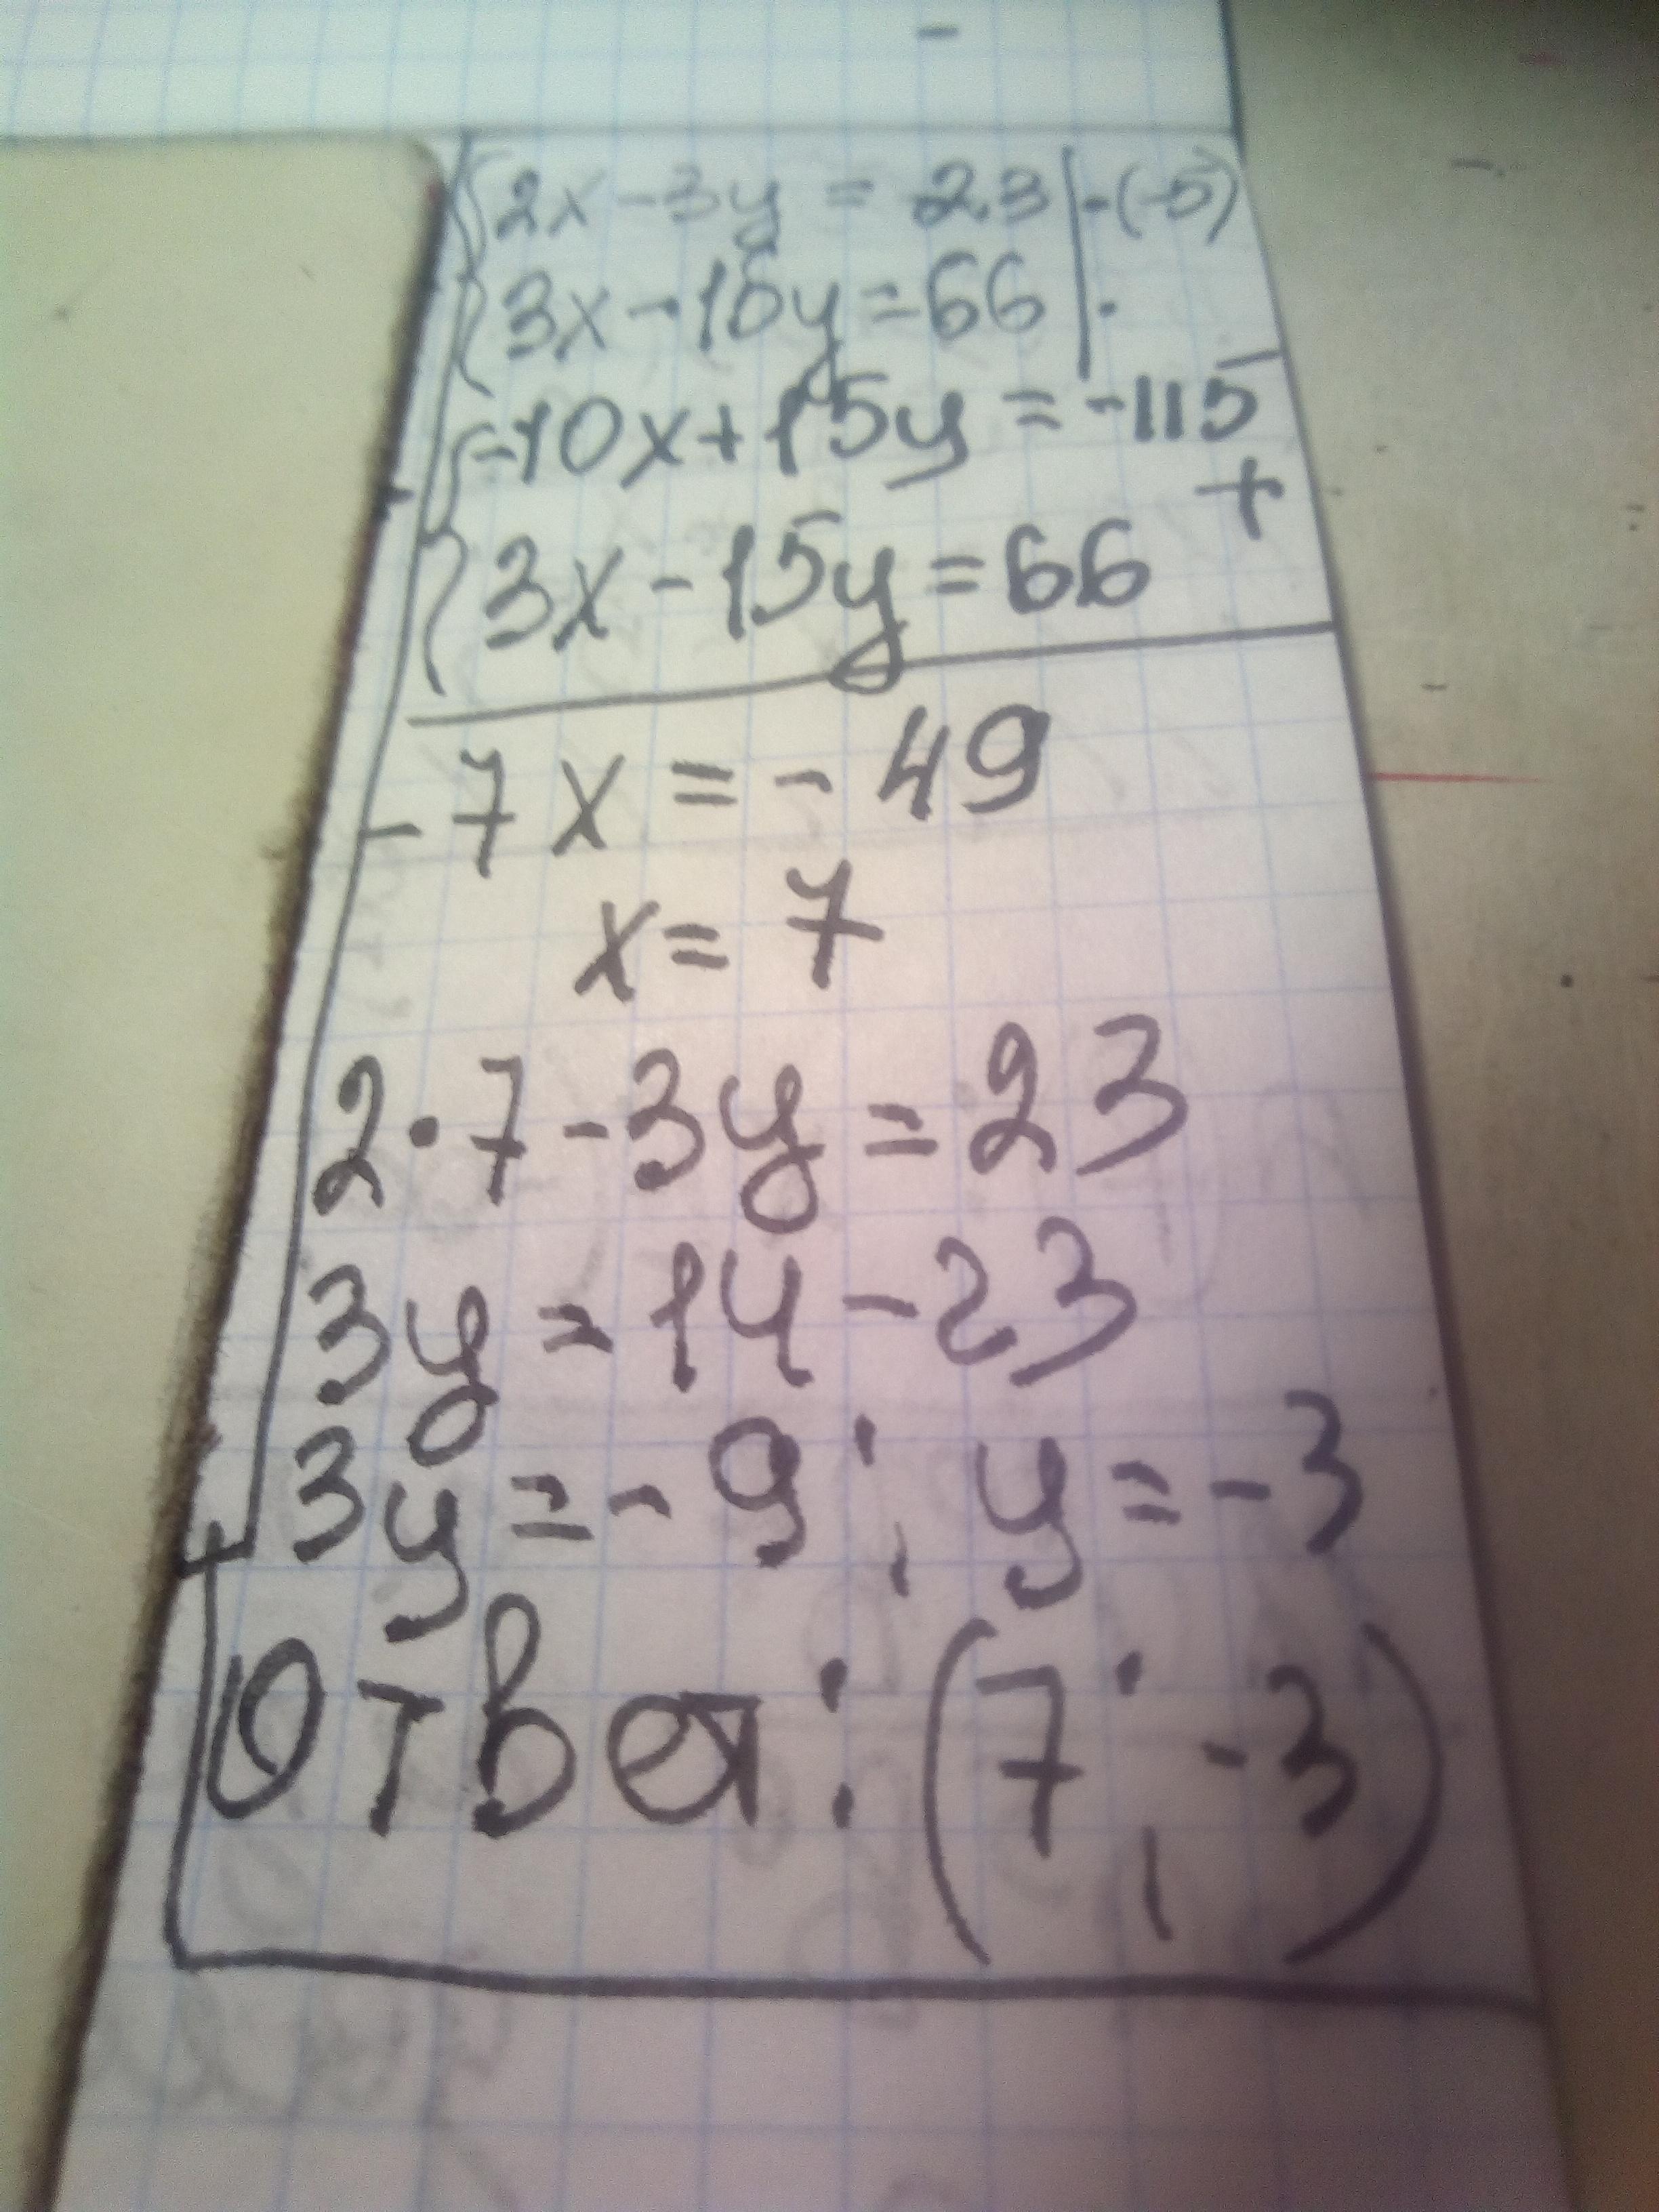 {2x-3y=23|·(-5)
{3x-15y=66|·
{-10x+15y=-115
+
{3x-15y=66
-7x=-49
x=7
2·7-3y=23
3y=14-23
3y=-9; y=-3
Ответ: (7; -3)